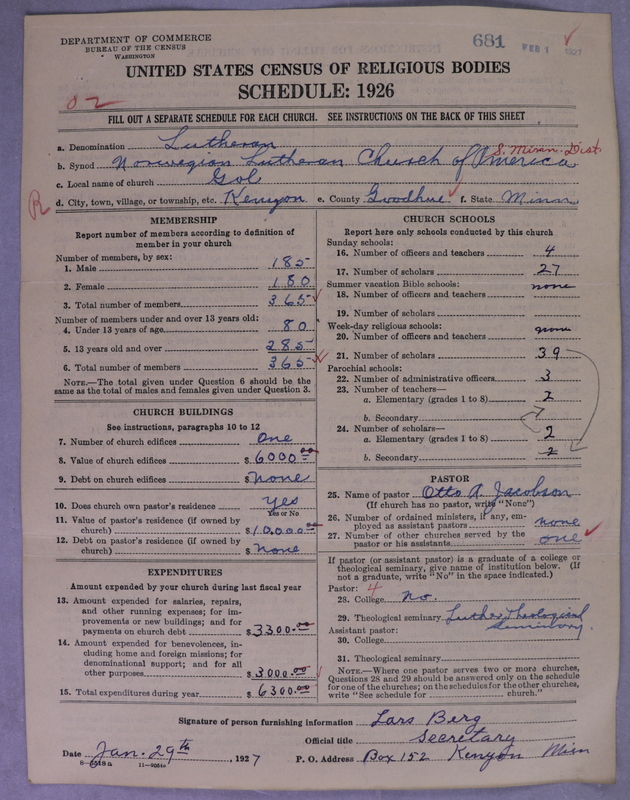 DEPARTMENT OF COMMERCE
BUREAU OF THE CENSUS
WASHINGTON
681 FEB 1 1927
UNITED STATES CENSUS OF RELIGIOUS BODIES
SCHEDULE: 1926
02
FILL OUT A SEPARATE SCHEDULE FOR EACH CHURCH. SEE INSTRUCTIONS ON THE BACK OF THIS SHEET
a. Denomination Lutheran
S. Minn. Dist.
b. Synod Norwegian Lutheran Church of America
c. Local name of church Gol
R
d. City, town, village, or township, etc. Kenyon e. County Goodhue f. State Minn
MEMBERSHIP
Report number of members according to definition of
member in your church
Number of members, by sex:
1. Male 185
2. Female 180
3. Total number of members 365
Number of members under and over 13 years old:
4. Under 13 years of age 80
5. 13 years old and over 285
6. Total number of members 365
NOTE.—The total given under Question 6 should be
same as the total of males and females given under Question 3.
CHURCH BUILDINGS
See instructions, paragraphs 10 to 12
7. Number of church edifices one
8. Value of church edifices $ 6000.00
9. Debt on church edifices $ none
10. Does church own pastor's residence yes
Yes or No
11. Value of pastor's residence (if owned by
church) $ 10,000.00
12. Debt on pastor's residence (if owned by
church) $ none
EXPENDITURES
Amount expended by your church during last fiscal year
13. Amount expended for salaries, repairs,
and other running expenses; for im-
provements or new buildings; and for
payments on church debt $ 3300.00
14. Amount expended for benevolences, in-
cluding home and foreign missions; for
denominational support; and for all
other purposes $ 3000.00
15. Total expenditures during year $ 6300.00
CHURCH SCHOOLS
Report here only schools conducted by this church
Sunday schools:
16. Number of officers and teachers 4
17. Number of scholars 27
Summer vacation Bible schools: none
18. Number of officers and teachers
19. Number of scholars
Week-day religious schools: none
20. Number of officers and teachers
21. Number of scholars 39
Parochial schools:
22. Number of administrative officers 3
23. Number of teachers—
a. Elementary (grades 1 to 8) 2
b. Secondary
24. Number of scholars—
a. Elementary (grades 1 to 8) 2
b. Secondary 2
PASTOR
25. Name of pastor Otto A. Jacobson
(If church has no pastor, write "None")
26. Number of ordained ministers, if any, em-
ployed as assistant pastors none
27. Number of other churches served by the
pastor or his assistants one
If pastor (or assistant pastor) is a graduate of a college or
theological seminary, give name of institution below. (If
not a graduate, write "No" in the space indicated.)
Pastor: 4
28. College no.
29. Theological seminary Luther Theological
Seminary.
Assistant pastor:
30. College
31. Theological seminary
NOTE.—Where one pastor serves two or more churches,
Questions 28 and 29 should be answered only on the schedule
for one of the churches; on the schedules for the other churches,
write "See schedule for church."
Signature of person furnishing information Lars Berg
Official title Secretary
Date Jan. 29th, 1927 P. O. Address Box 152 Kenyon Minn